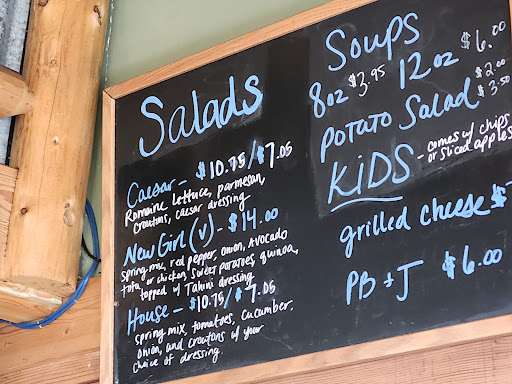 Salads
Caesar - $10.75/$7.05
Romaine Lettuce, parmesan,
croutons, caesar dressing
New Girl (v) - $14.00
spring mix, red pepper, onion, avocado
tofu or chicken, sweet potatoes, quinoa,
topped w/ Tahini dressing
House - $10.75/$7.05
spring mix, tomatoes, cucumber,
onion, and croutons w/ your
choice of dressing
Soups
8oz $3.95 12oz $6.00
Potato Salad $2.00
$3.50
KiDS - comes w/ chips
or sliced apples
grilled cheese $7
PB + J $6.00